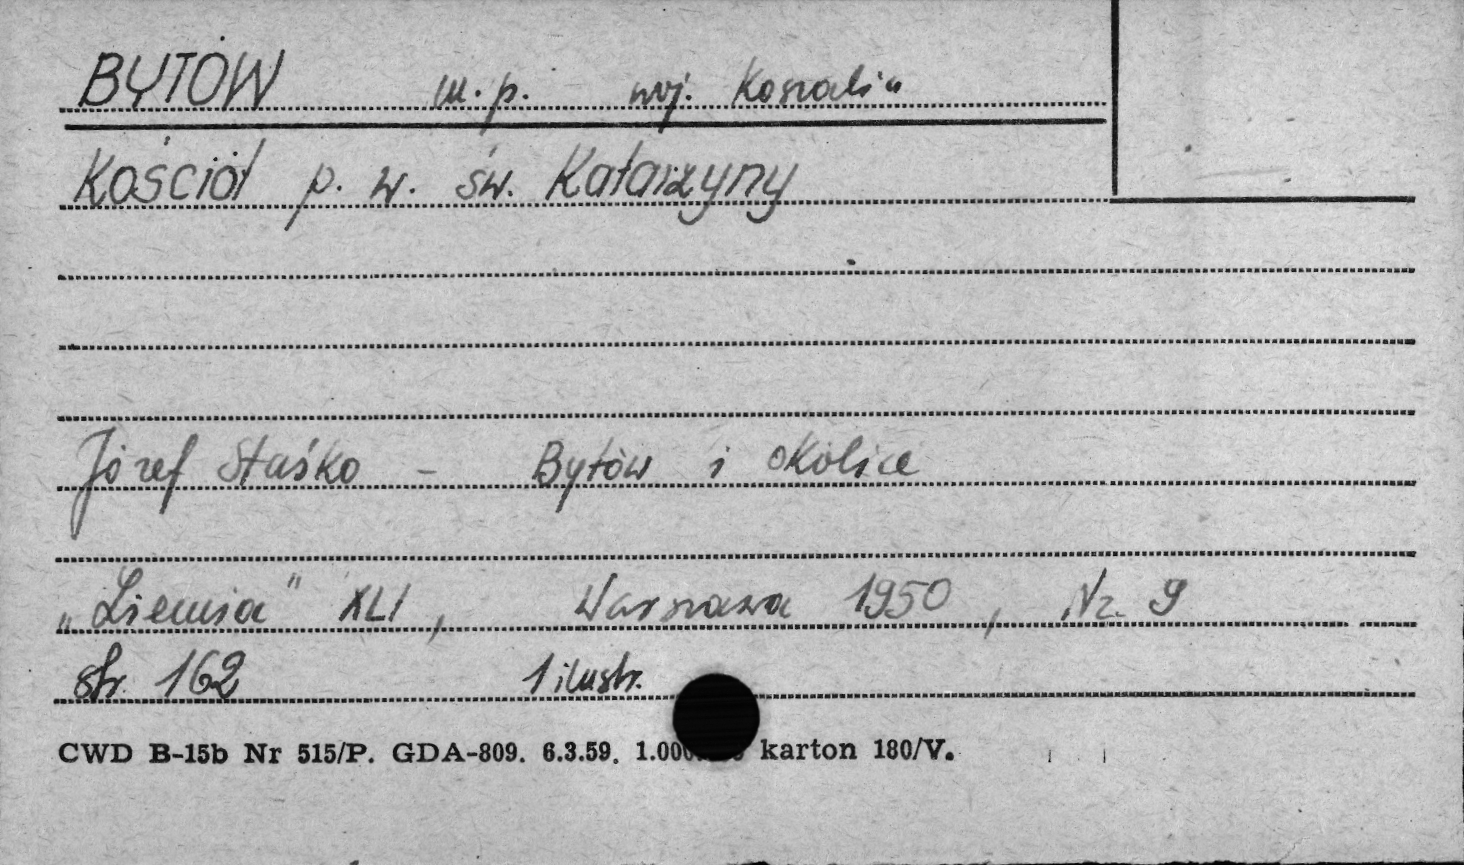 BYTÓW m.p. woj. Koszalin
Kościół p. w. św. Katarzyny
Józef Staśko - Bytów i okolice
„Ziemia" XLI, Warszawa 1950, Nr. 9
str. 162 1 ilustr.
CWD B-15b Nr 515/P. GDA-809. 6.3.59. 1.000 karton 180/V.